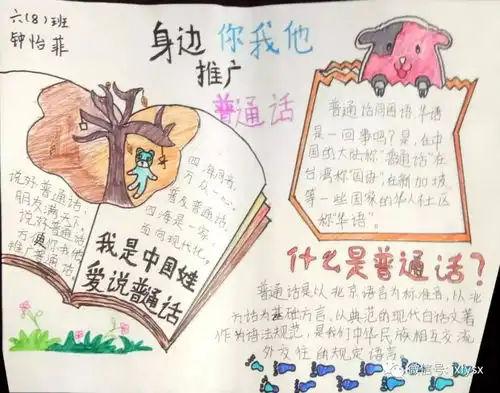 六(8)班
钟怡菲
身边你我他
推广
普通话
普通话同国语、华语
是一回事吗?是,在中
国的大陆称"普通话"在
台湾称"国语",在新加坡
等一些国家的华人社区
称"华语"。
四海同音,
万众一心,
普及普通话,
四海是一家,
面向现代化,
说好普通话,
朋友满天下,
说好普通话,
方便你我他,
推广普通话
我是中国娃
爱说普通话
什么是普通话?
普通话是以北京语音为标准音,以北
方话为基础方言,以典范的现代白话文著
作为语法规范,是我们中华民族相互交流
外交往的规定语言。
微信号: xlysx